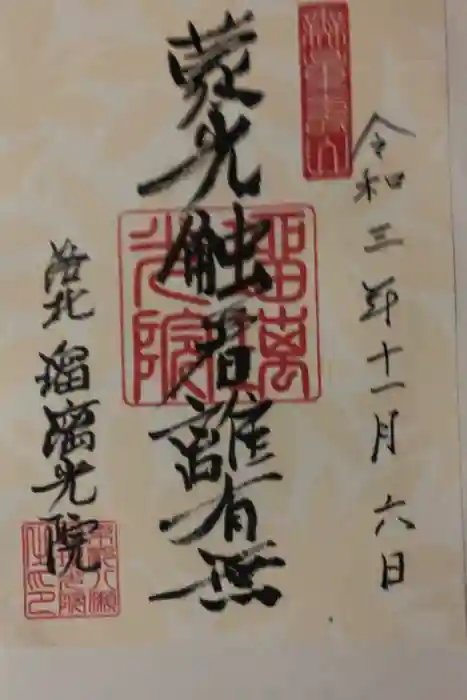 令和三年十一月六日
蒙光触者離有無
瑠璃光院
洛北 瑠璃光院